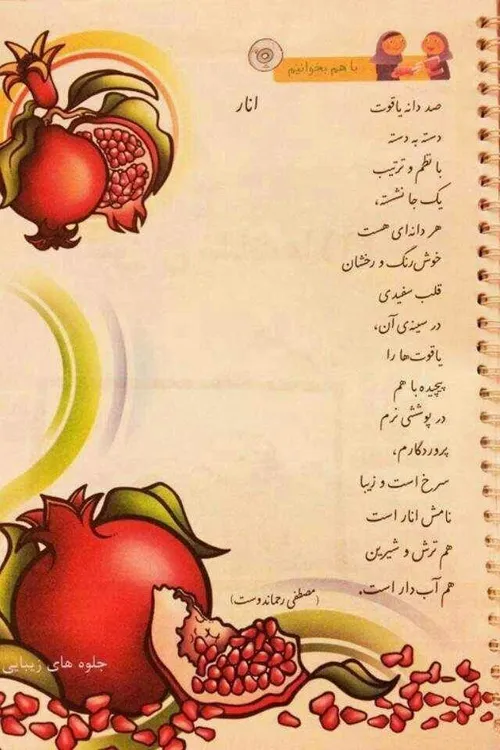 با هم بخوانیم
انار
صد دانه یاقوت
دسته به دسته
با نظم و ترتیب
یک جا نشسته،
هر دانه‌ای هست
خوش‌رنگ و رخشان
قلب سفیدی
در سینه‌ی آن،
یاقوت‌ها را
پیچیده با هم
در پوششی نرم
پروردگارم،
سرخ است و زیبا
نامش انار است
هم ترش و شیرین
هم آب‌دار است.
(مصطفی رحماندوست)
جلوه های زیبایی